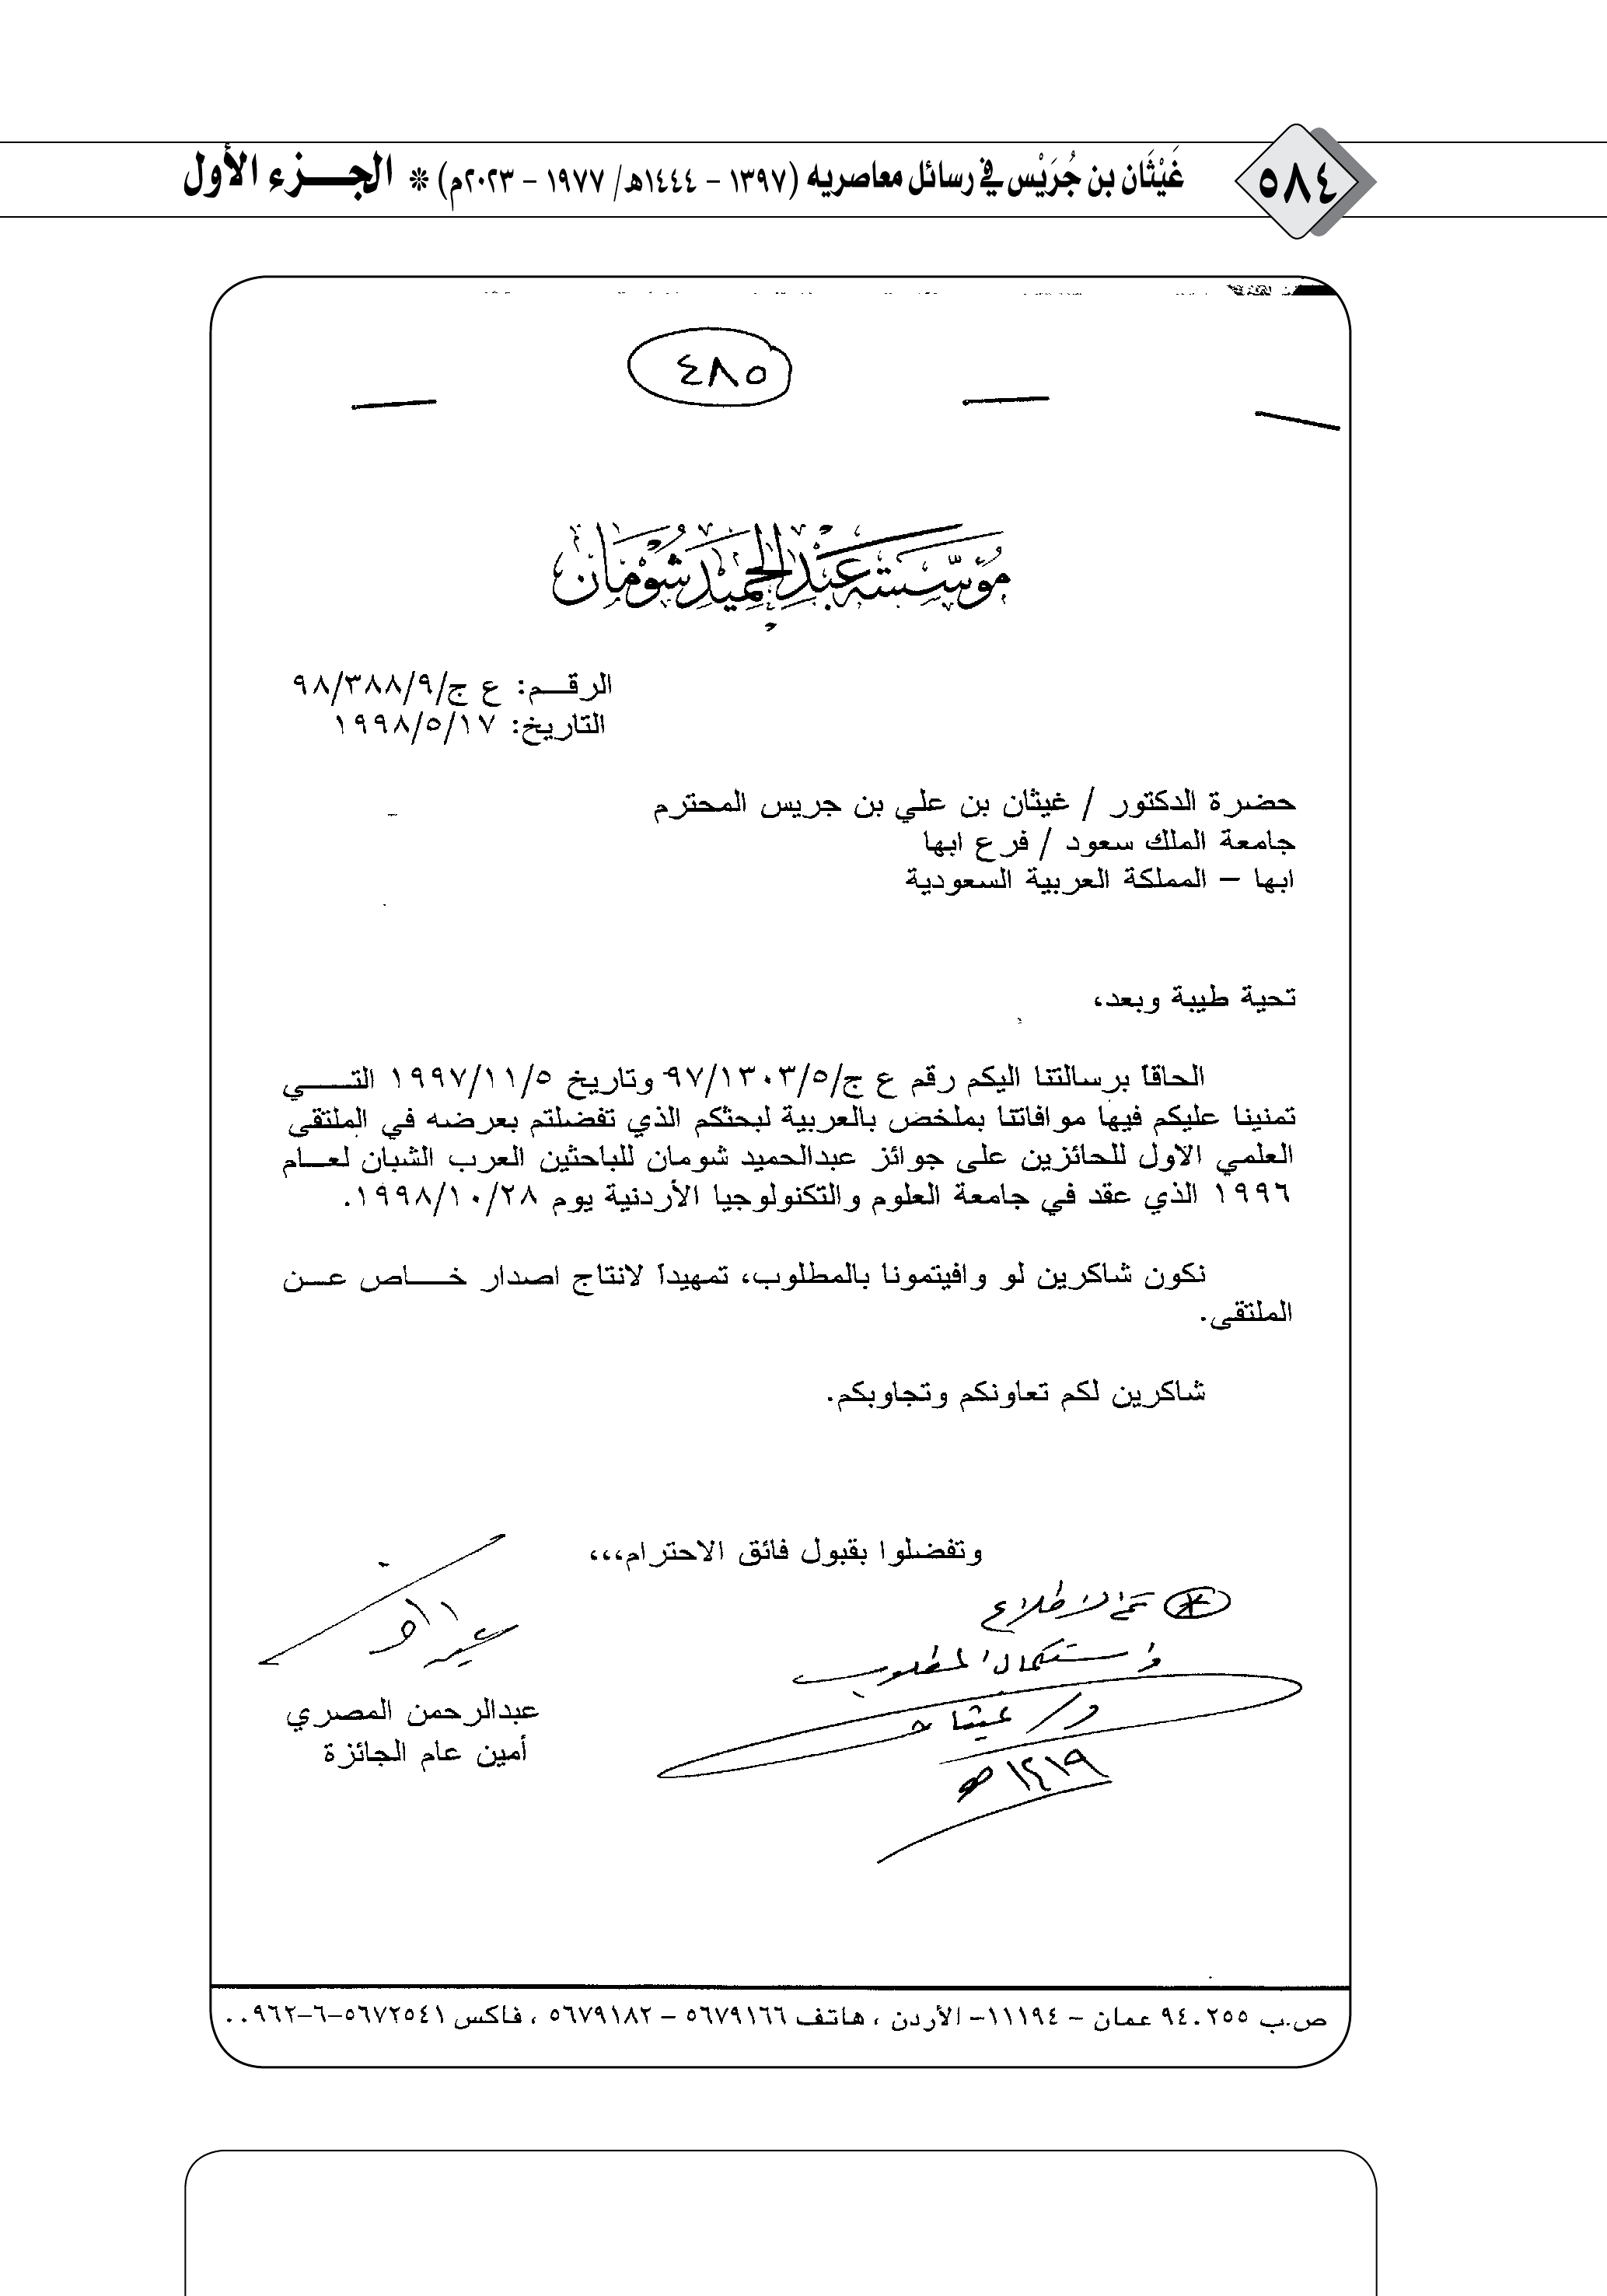 ٥٨٤
غَيْثَان بن جُرَيْس في رسائل معاصريه (١٣٩٧ – ١٤٤٤هـ/ ١٩٧٧ – ٢٠٢٣م) * الجـــزء الأول
٤٨٥
مؤسسة عبد الحميد شومان
الرقـــم: ع ج/٩٨/٣٨٨/٩
التاريخ: ١٩٩٨/٥/١٧
حضرة الدكتور / غيثان بن علي بن جريس المحترم
جامعة الملك سعود / فرع ابها
ابها – المملكة العربية السعودية
تحية طيبة وبعد،
الحاقاً برسالتنا اليكم رقم ع ج/٩٧/١٣٠٣/٥ وتاريخ ١٩٩٧/١١/٥ التـــي
تمنينا عليكم فيها موافاتنا بملخص بالعربية لبحثكم الذي تفضلتم بعرضه في الملتقى
العلمي الاول للحائزين على جوائز عبدالحميد شومان للباحثين العرب الشبان لعـــام
١٩٩٦ الذي عقد في جامعة العلوم والتكنولوجيا الأردنية يوم ١٩٩٨/١٠/٢٨.
نكون شاكرين لو وافيتمونا بالمطلوب، تمهيداً لانتاج اصدار خـــاص عـــن
الملتقى.
شاكرين لكم تعاونكم وتجاوبكم.
وتفضلوا بقبول فائق الاحترام،،،
تم الاطلاع
واستكمال المطلوب
د/ غيثان
١٤١٩هـ
عبدالرحمن المصري
أمين عام الجائزة
ص.ب ٩٤٠٢٥٥ عمان – ١١١٩٤– الأردن ، هاتف ٥٦٧٩١٦٦ – ٥٦٧٩١٨٢ ، فاكس ٥٦٧٢٥٤١–٦–٠٠٩٦٢